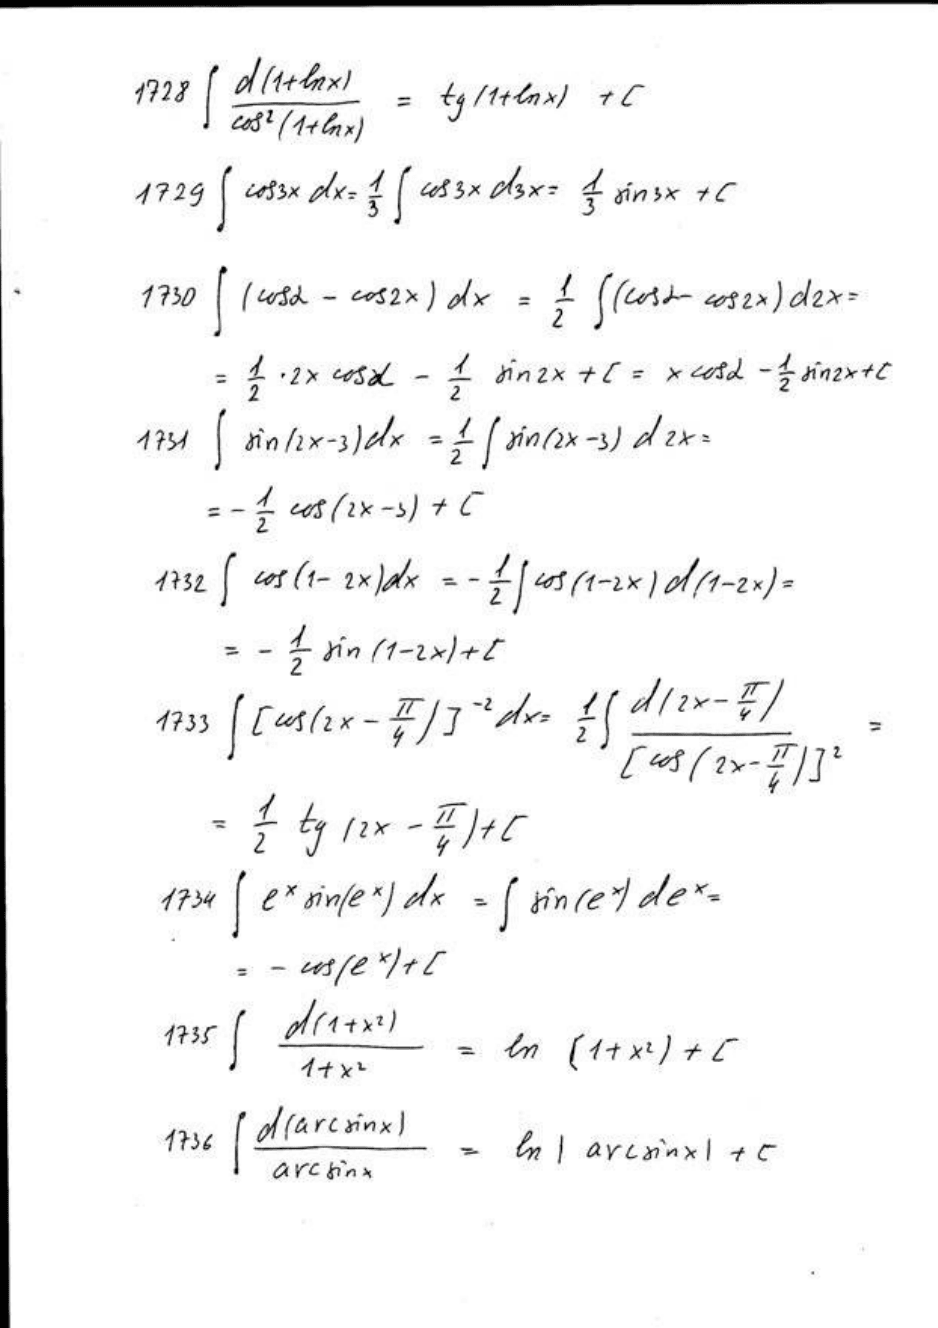 1728 ∫ d(1+lnx) / cos²(1+lnx) = tg(1+lnx) + C
1729 ∫ cos3x dx = 1/3 ∫ cos3x d3x = 1/3 sin3x + C
1730 ∫ (cosα - cos2x) dx = 1/2 ∫(cosα - cos2x) d2x =
= 1/2 · 2x cosα - 1/2 sin2x + C = x cosα - 1/2 sin2x + C
1731 ∫ sin(2x-3)dx = 1/2 ∫ sin(2x-3) d2x =
= - 1/2 cos(2x-3) + C
1732 ∫ cos(1-2x)dx = - 1/2 ∫ cos(1-2x) d(1-2x) =
= - 1/2 sin(1-2x) + C
1733 ∫ [cos(2x - π/4)]⁻² dx = 1/2 ∫ d(2x - π/4) / [cos(2x - π/4)]² =
= 1/2 tg(2x - π/4) + C
1734 ∫ eˣ sin(eˣ) dx = ∫ sin(eˣ) deˣ =
= - cos(eˣ) + C
1735 ∫ d(1+x²) / 1+x² = ln (1+x²) + C
1736 ∫ d(arcsinx) / arcsinx = ln | arcsinx | + C